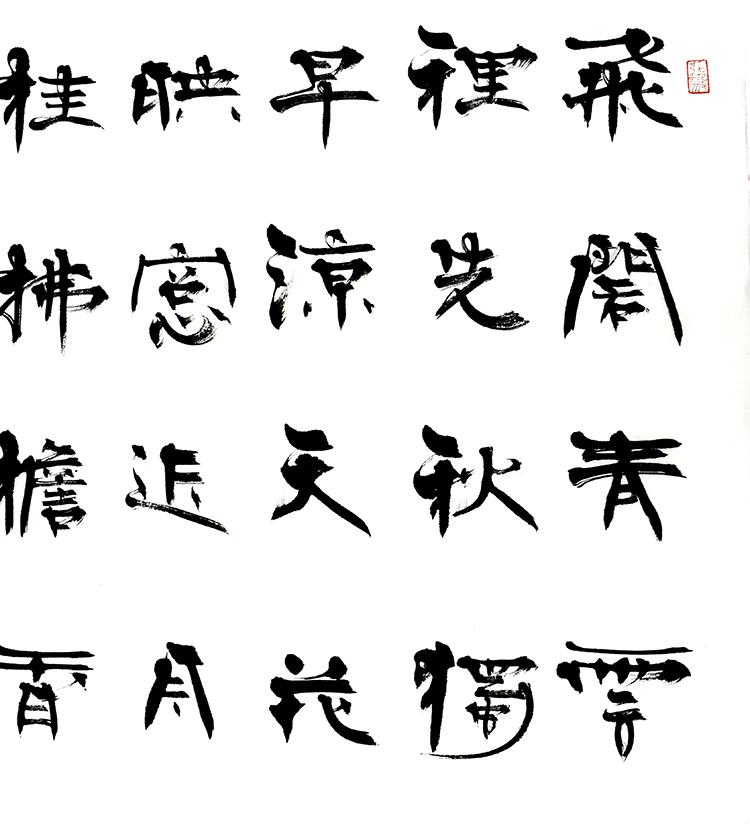 飛閣青雲
裡先秋獨
早涼天花
映窓近月
桂拂檐香